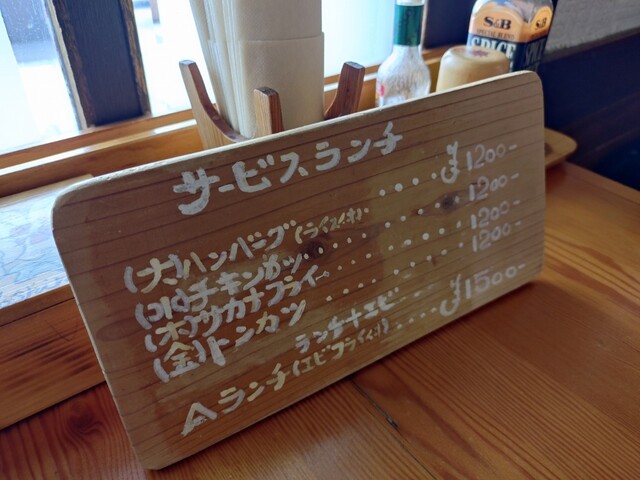 S&B
SPECIAL BLEND
SPICE
サービスランチ
(火)ハンバーグ(ライス付)・・・・¥1200-
(水)チキンカツ・・・・・・・・1200-
(木)サカナフライ・・・・・・・1200-
(金)トンカツ・・・・・・・・・1200-
ランチ+エビ
Aランチ(エビフライ付)・・・・¥1500-